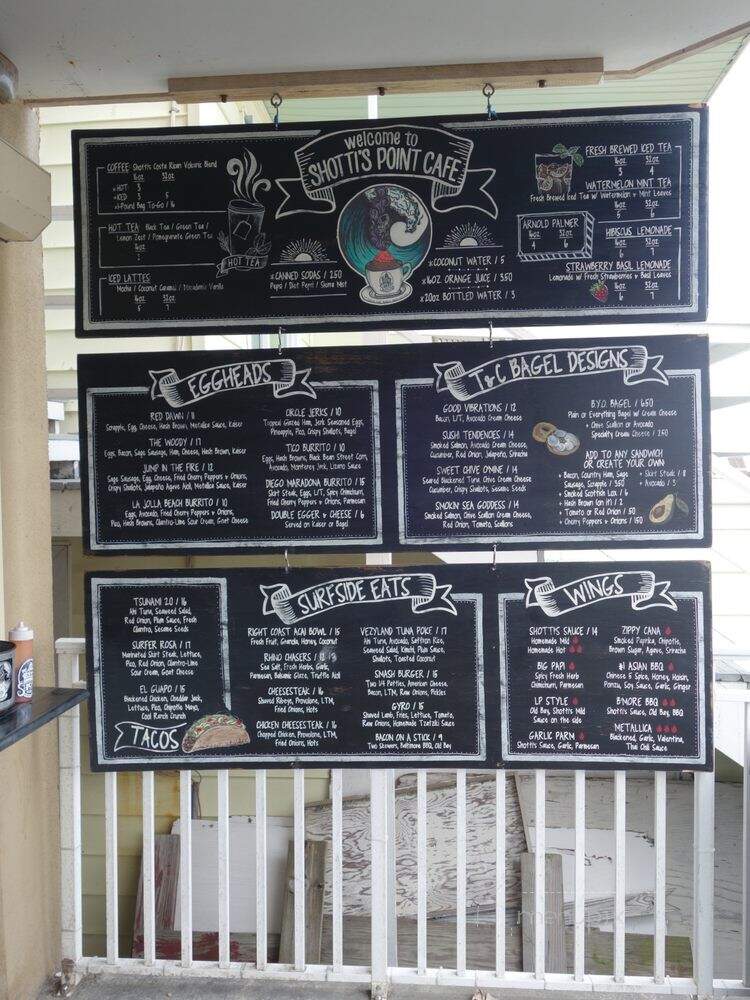 welcome to
SHOTTI'S POINT CAFE
COFFEE Shotti's Costa Rican Volcanic Blend
16oz 32oz
HOT 3
ICED 3 5
1-Pound Bag To-Go / 16
HOT TEA Black Tea / Green Tea /
Lemon Zest / Pomegranate Green Tea
16oz
2
HOT TEA
ICED LATTES
Mocha / Coconut Caramel / Macadamia Vanilla
16oz 32oz
5 7
CANNED SODAS / 2.50
Pepsi / Diet Pepsi / Sierra Mist
COCONUT WATER / 5
16OZ. ORANGE JUICE / 3.50
20oz BOTTLED WATER / 3
FRESH BREWED ICED TEA
16oz 32oz
3 4
WATERMELON MINT TEA
Fresh Brewed Iced Tea w/ Watermelon + Mint Leaves
16oz 32oz
5 6
ARNOLD PALMER
16oz 32oz
4 6
HIBISCUS LEMONADE
16oz 32oz
6 7
STRAWBERRY BASIL LEMONADE
Lemonade w/ Fresh Strawberries + Basil Leaves
16oz 32oz
6 7
EGGHEADS
RED DAWN / 11
Scrapple, Egg, Cheese, Hash Brown, Metallica Sauce, Kaiser
THE WOODY / 17
Eggs, Bacon, Sage Sausage, Ham, Cheese, Hash Brown, Kaiser
JUMP IN THE FIRE / 12
Sage Sausage, Egg, Cheese, Fried Cherry Peppers + Onions,
Crispy Shallots, Jalapeño Agave Aioli, Metallica Sauce, Kaiser
LA JOLLA BEACH BURRITO / 10
Eggs, Avocado, Fried Cherry Peppers + Onions,
Pico, Hash Browns, Cilantro-Lime Sour Cream, Goat Cheese
CIRCLE JERKS / 10
Tropical Glazed Ham, Jerk Seasoned Eggs,
Pineapple, Pico, Crispy Shallots, Bagel
TICO BURRITO / 10
Eggs, Hash Browns, Black Bean Street Corn,
Avocado, Monterey Jack, Lizano Sauce
DIEGO MARADONA BURRITO / 15
Skirt Steak, Eggs, L/T, Spicy Chimichurri,
Fried Cherry Peppers + Onions, Parmesan
DOUBLE EGGER & CHEESE / 6
Served on Kaiser or Bagel
T&C BAGEL DESIGNS
GOOD VIBRATIONS / 12
Bacon, L/T, Avocado Cream Cheese
SUSHI TENDENCIES / 14
Smoked Salmon, Avocado Cream Cheese,
Cucumber, Red Onion, Jalapeño, Sriracha
SWEET CHIVE O'MINE / 14
Seared Blackened Tuna, Chive Cream Cheese
Cucumber, Crispy Shallots, Sesame Seeds
SMOKIN' SEA GODDESS / 14
Smoked Salmon, Chive Scallion Cream Cheese,
Red Onion, Tomato, Scallions
B.Y.O. BAGEL / 6.50
Plain or Everything Bagel w/ Cream Cheese
+ Chive Scallion or Avocado
Specialty Cream Cheese / 2.50
ADD TO ANY SANDWICH
OR CREATE YOUR OWN
+ Bacon, Country Ham, Sage
Sausage, Scrapple / 3.50
+ Smoked Scottish Lox / 6
+ Hash Brown (on it!) / 2
+ Tomato or Red Onion / .50
+ Cherry Peppers + Onions / 1.50
+ Skirt Steak / 8
+ Avocado / 3
TSUNAMI 2.0 / 16
Ahi Tuna, Seaweed Salad,
Red Onion, Plum Sauce, Fresh
Cilantro, Sesame Seeds
SURFER ROSA / 17
Marinated Skirt Steak, Lettuce,
Pico, Red Onion, Cilantro-Lime
Sour Cream, Goat Cheese
EL GUAPO / 15
Blackened Chicken, Cheddar Jack,
Lettuce, Pico, Chipotle Mayo,
Cool Ranch Crunch
TACOS
SURFSIDE EATS
RIGHT COAST ACAI BOWL / 15
Fresh Fruit, Granola, Honey, Coconut
RHINO CHASERS /
Sea Salt, Fresh Herbs, Garlic,
Parmesan, Balsamic Glaze, Truffle Aioli
CHEESESTEAK / 16
Shaved Ribeye, Provolone, LTM,
Fried Onions, Hots
CHICKEN CHEESESTEAK / 16
Chopped Chicken, Provolone, LTM,
Fried Onions, Hots
VEZYLAND TUNA POKE / 17
Ahi Tuna, Avocado, Saffron Rice,
Seaweed Salad, Kimchi, Plum Sauce,
Shallots, Toasted Coconut
SMASH BURGER / 15
Two 1/4 Patties, American Cheese,
Bacon, LTM, Raw Onions, Pickles
GYRO / 15
Shaved Lamb, Fries, Lettuce, Tomato,
Raw Onions, Homemade Tzatziki Sauce
BACON ON A STICK / 9
Two Skewers, Baltimore BBQ, Old Bay
WINGS
SHOTTI'S SAUCE / 14
Homemade Mild
Homemade Hot
BIG PAPI
Spicy Fresh Herb
Chimichurri, Parmesan
LP STYLE
Old Bay, Shotti's Mild
Sauce on the side
GARLIC PARM
Shotti's Sauce, Garlic, Parmesan
ZIPPY CANA
Smoked Paprika, Chipotle,
Brown Sugar, Agave, Sriracha
#1 ASIAN BBQ
Chinese 5 Spice, Honey, Hoisin,
Ponzu, Soy Sauce, Garlic, Ginger
B'MORE BBQ
Shotti's Sauce, Old Bay, BBQ
METALLICA
Blackened, Garlic, Valentina,
Thai Chili Sauce